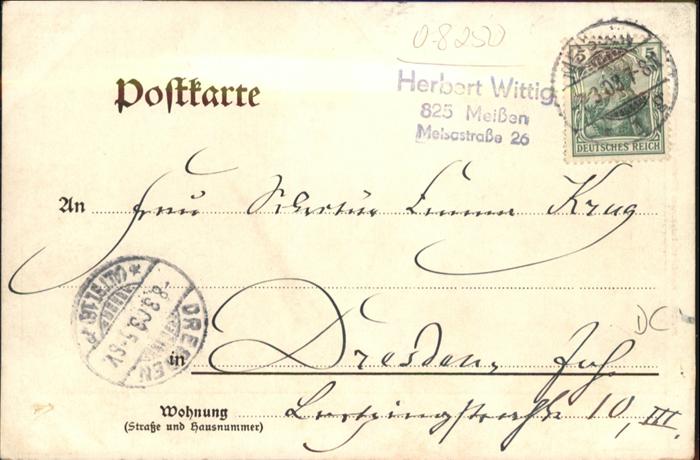 0-8250
Herbert Wittig
825 Meißen
Meisastraße 26
5 5
DEUTSCHES REICH
Postkarte
An Frau Sekretär Emma Krug
DRESDEN
8.3.03.5-6V
in Dresden, Joh.
Wohnung 10, III.
(Straße und Hausnummer)
DC